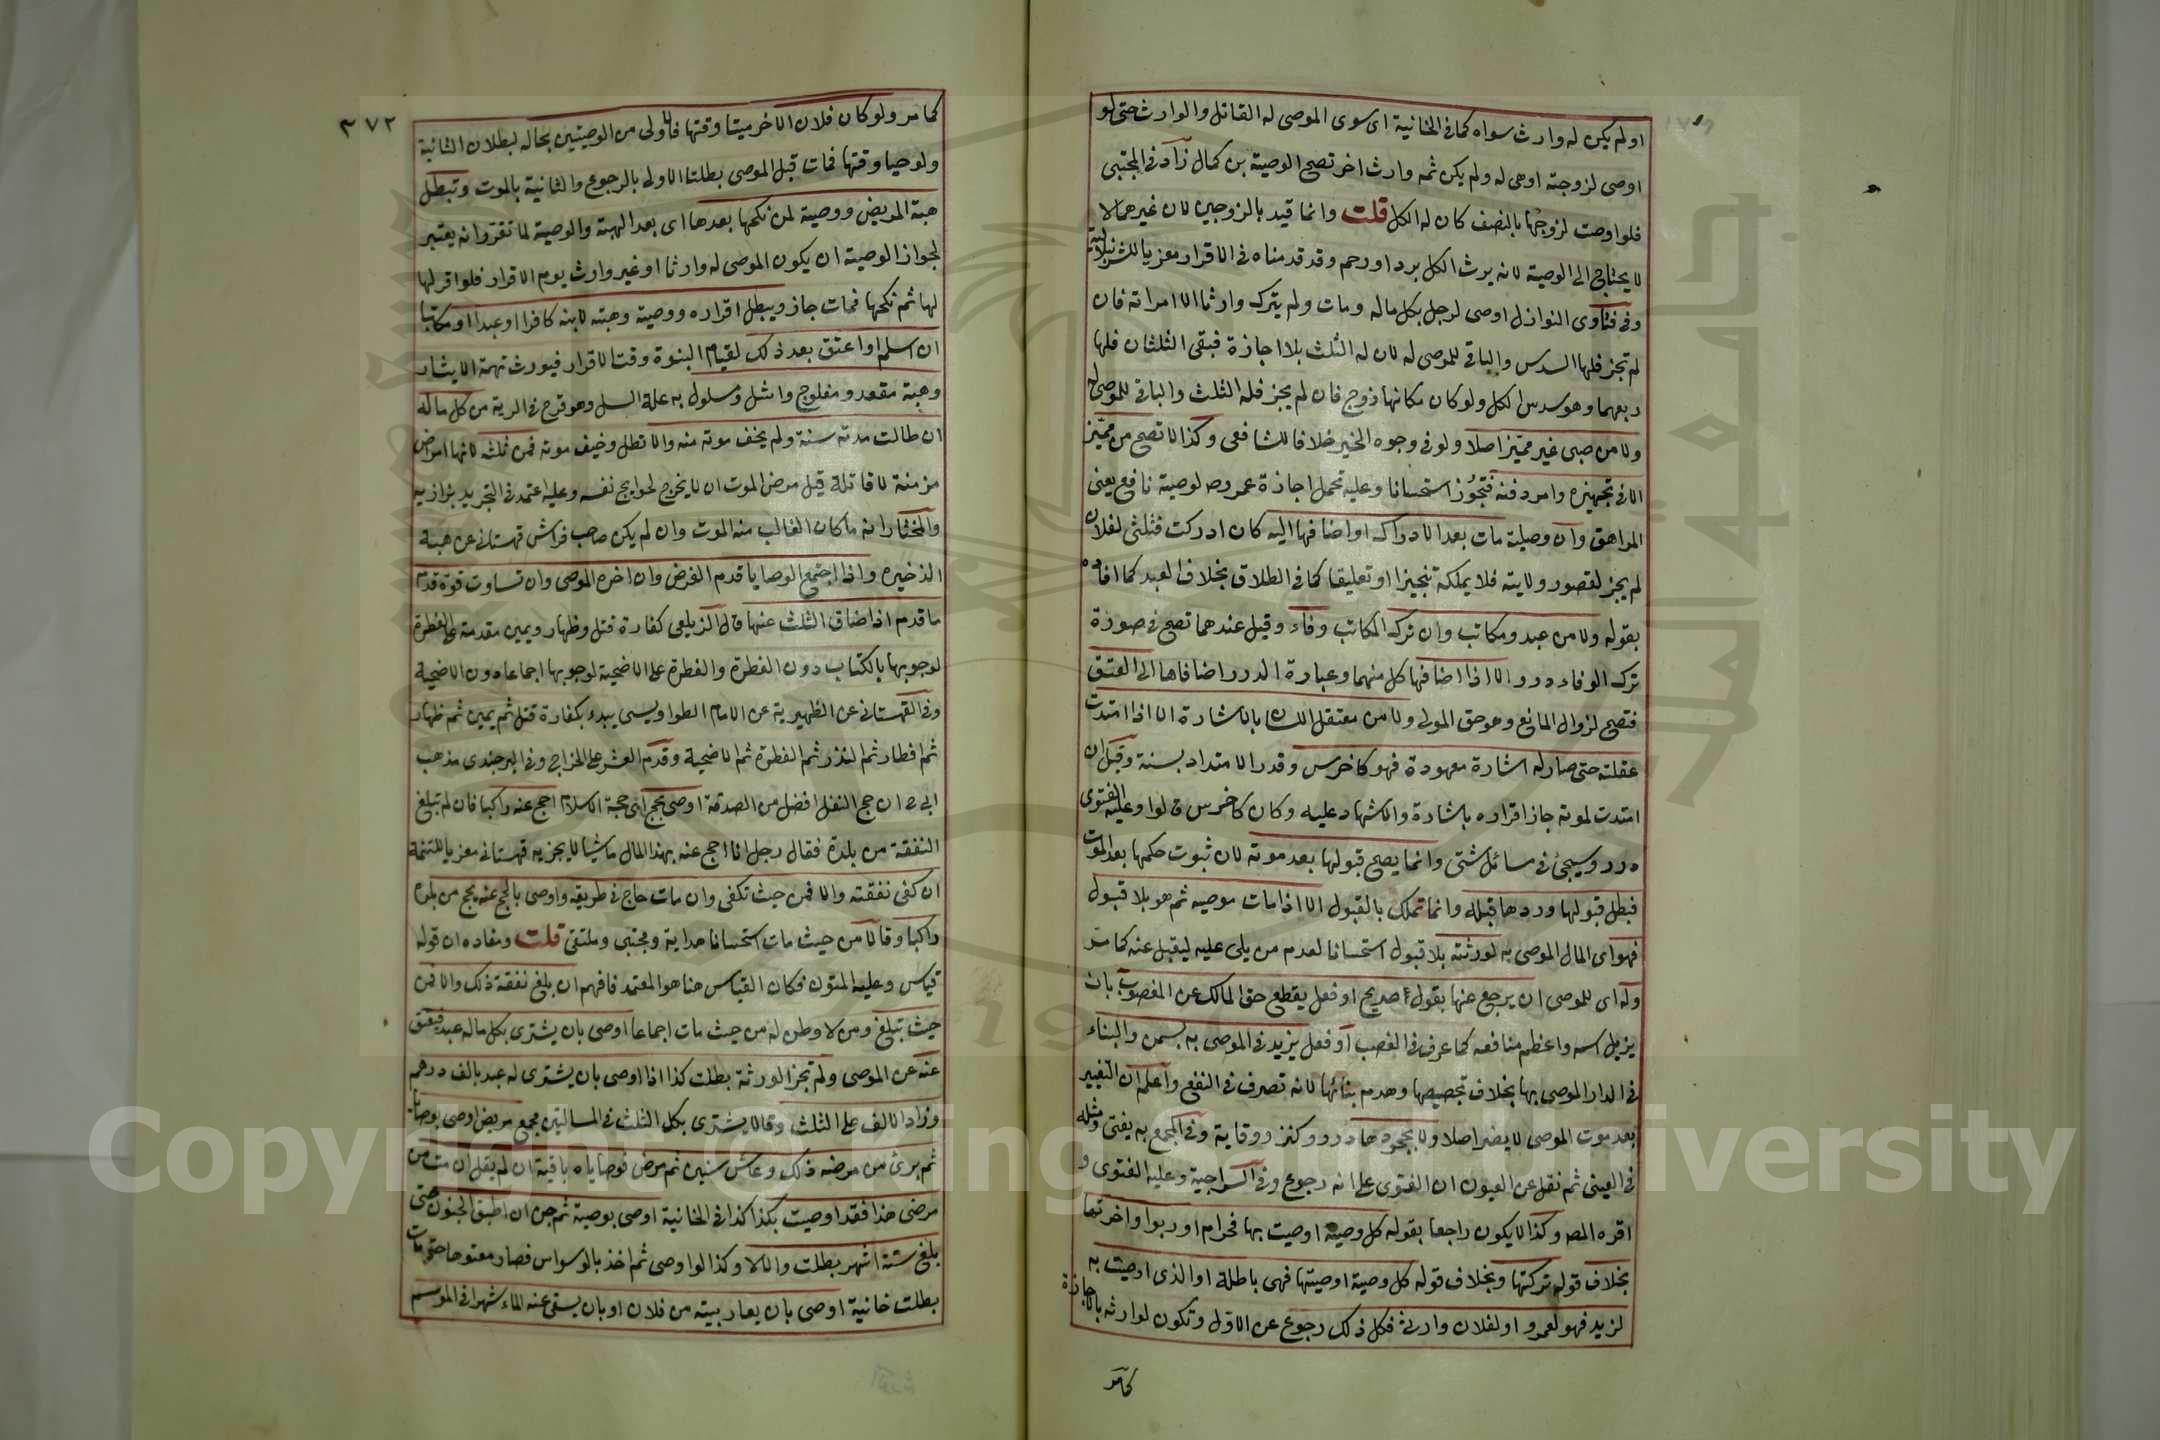 او لم يكن له وارث سواه كما فى الخانية اى سوى الموصى له القاتل والوارث حتى لو
اوصى لزوجته او هى له ولم يكن ثمه وارث اخر تصح الوصية بن كمال زاد فى المجتبى
فلو اوصت لزوجها بالنصف كان له الكل قلت وانما قيد بالزوجين لان غيرهما لا
لا يحتاج الى الوصية لانه يرث الكل برد او رحم وقد قدمناه فى الاقرار معزيا للشرنبلالية
وفى فتاوى النوازل اوصى لرجل بكل ماله ومات ولم يترك وارثا الا امراته فان
لم تجز فلها السدس والباقى للموصى له لان له الثلث بلا اجازة فبقى الثلثان فلها
ربعهما وهو سدس الكل ولو كان مكانها زوج فان لم يجز فله الثلث والباقى للموصى له
ولا من صبى غير مميز اصلا ولو فى وجوه الخير خلافا للشافعى وكذا لا تصح من مميز
الا فى تجهيزه وامر دفنه فتجوز استحسانا وعليه تحمل اجازة عمر رضه لوصية نافع يعنى
المراهق وان وصلية مات بعد الادراك او اضافها اليه كان ادركت فثلثى لفلان
لم يجز لقصور ولايته فلا يملكه تنجيزا او تعليقا كما فى الطلاق بخلاف العبد كما افاده
بقوله ولا من عبد ومكاتب وان ترك المكاتب وفاء وقيل عندهما تصح فى صورة
ترك الوفاء درر الا اذا اضافها كل منهما وعبارة الدرر اضافاها الى العتق
فتصح لزوال المانع وهو حق المولى ولا من معتقل اللسان بالاشارة الا اذا امتدت
عقلته حتى صار له اشارة معهودة فهو كاخرس وقدر الامتداد بسنة وقيل ان
امتدت لموته جاز اقراره باشارة والاشهاد عليه وكان كاخرس قالوا وعليه الفتوى
درر وسيجئ فى مسائل شتى وانما يصح قبولها بعد موته لان ثبوت حكمها بعد الموت
فبطل قبولها وردها قبله وانما تملك بالقبول الا اذا مات موصيه ثم هو بلا قبول
فهو اى المال الموصى به لورثته بلا قبول استحسانا لعدم من يلى عليه ليقبل عنه كما مر
وله اى للموصى ان يرجع عنها بقول صريح او فعل يقطع حق المالك عن المغصوب بان
يزيل اسمه واعظم منافعه كما عرف فى الغصب او فعل يزيد فى الموصى به بسمن والبناء
فى الدار الموصى بها بخلاف تجصيصها وهدم بنائها لانه تصرف فى النفع واعلم ان التغيير
بعد موت الموصى لا يضر اصلا ولا بجحودها درر وكنز ووقاية وفى المجمع به يفتى ومثله
فى العينى ثم نقل عن العيون ان الفتوى على انه رجوع وفى السراجية وعليه الفتوى و
اقره المص وكذا لا يكون راجعا بقوله كل وصية اوصيت بها فحرام او ربوا واخرتها
بخلاف قوله تركتها وبخلاف قوله كل وصية اوصيتها فهى باطلة او الذى اوصيت به
لزيد فهو لعمرو او لفلان وارثى فكل ذلك رجوع عن الاول وتكون لوارثه بالاجازة
كما مر
٣٧٢
كما مر ولو كان فلان الاخر ميتا وقتها فالاولى من الوصيتين بحاله لبطلان الثانية
ولو حيا وقتها فمات قبل الموصى بطلتا الاولى بالرجوع والثانية بالموت وتبطل
هبة المريض ووصية لمن نكحها بعدها اى بعد الهبة والوصية لما تقرر انه يعتبر
لجواز الوصية ان يكون الموصى له وارثا او غير وارث يوم الاقرار فلو اقر لها
لها ثم نكحها فمات جاز ويبطل اقراره ووصية وهبته لابنه كافرا او عبدا او مكاتبا
ان اسلم او اعتق بعد ذلك لقيام البنوة وقت الاقرار فيورث تهمة الايثار
وهبة مقعد ومفلوج واشل ومسلول به علة السل وهو قرح فى الرية من كل ماله
ان طالت مدته سنة ولم يخف موته منه والا تطل وخيف موته فمن ثلثه لانها امراض
مزمنة لا قاتلة قيل مرض الموت ان لا يخرج لحوايج نفسه وعليه اعتمد فى التجريد بزازيه
والمختار انه ما كان الغالب منه الموت وان لم يكن صاحب فراش قهستانى عن هبة
الذخيره واذا اجتمع الوصايا قدم الفرض وان اخره الموصى وان تساوت قوة قدم
ما قدم اذا ضاق الثلث عنها قال الزيلعى كفارة قتل وظهار ويمين مقدمة على الفطرة
لوجوبها بالكتاب دون الفطرة والفطرة على الاضحية لوجوبها اجماعا دون الاضحية
وفى القهستانى عن الظهيرية عن الامام الطواويسى يبدء بكفارة قتل ثم يمين ثم ظهار
ثم افطار ثم النذر ثم الفطرة ثم الاضحية وقدم العشر على الخراج وفى البرجندى مذهب
ابى ح ان حج النفل افضل من الصدقة اوصى بحج اى حجة الاسلام احج عنه راكبا فان لم تبلغ
النفقة من بلدة فقال رجل انا احج عنه بهذا المال ماشيا لا يجزيه قهستانى معزيا للتتمة
ان كفى نفقته والا فمن حيث تكفى وان مات حاج فى طريقه واوصى بالحج عنه يحج من بلده
راكبا وقالا من حيث مات استحسانا هداية ومجتبى وملتقى قلت ومفاده ان قوله
قياس وعليه المتون فكان القياس هنا هو المعتمد فافهم ان بلغ نفقة ذلك والا فمن
حيث تبلغ ومن لا وطن له من حيث مات اجماعا اوصى بان يشترى بكل ماله عبد فيعتق
عنه عن الموصى ولم تجز الورثة بطلت كذا اذا اوصى بان يشترى له عبد بالف درهم
وزاد الالف على الثلث وقالا يشترى بكل الثلث فى المسالتين مجمع مريض اوصى بوصايا
ثم برئ من مرضه ذلك وعاش سنين ثم مرض فوصاياه باقية ان لم يقل ان مت من
مرضى هذا فقد اوصيت بكذا كذا فى الخانية اوصى بوصية ثم جن ان اطبق الجنون حتى
بلغ ستة اشهر بطلت والا لا وكذا لو اوصى ثم اخذ بالوسواس فصار معتوها حتى مات
بطلت خانية اوصى بان يعار بيته من فلان او بان يسقى عنه الماء شهرا فى الموسم
Copyright © King Saud University